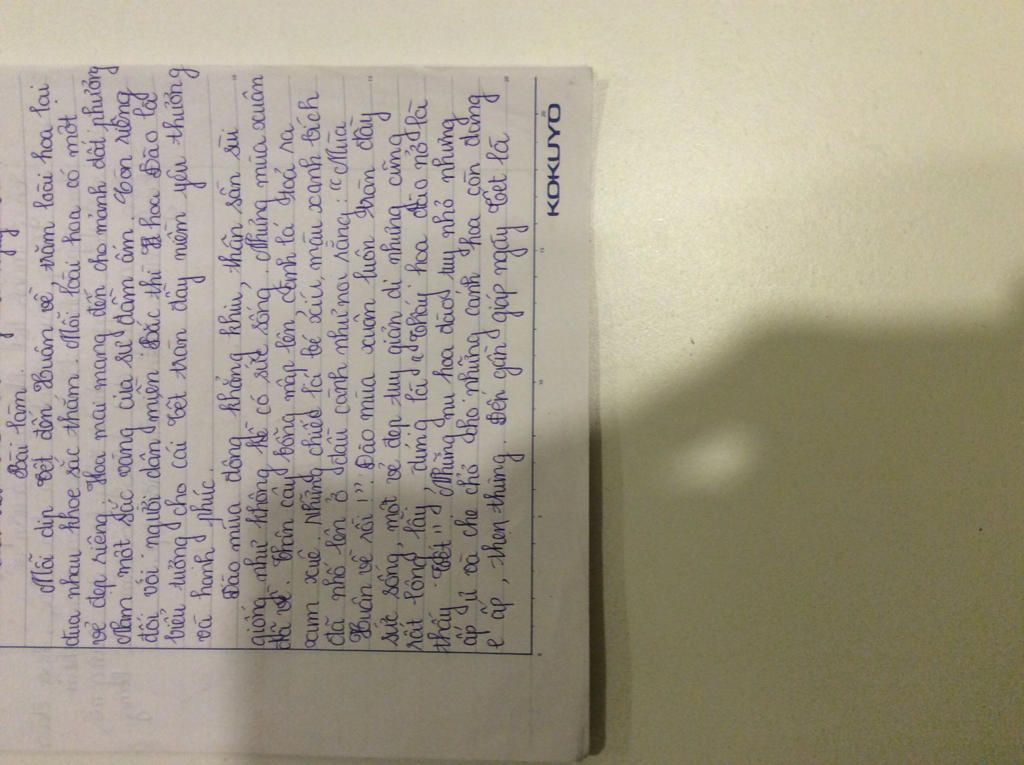 Bài làm
Mỗi dịp tết đến Xuân về, trăm loài hoa lại
đua nhau khoe sắc thắm. Mỗi loài hoa có một
vẻ đẹp riêng. Hoa mai mang đến cho mảnh đất phương
Nam một sắc vàng của sự đầm ấm. Còn riêng
đối với người dân miền Bắc thì hoa Đào là
biểu tượng cho cái tết tràn đầy niềm yêu thương
và hạnh phúc.
Đào mùa đông khẳng khiu, thân sần sùi
giống như không hề có sức sống. Nhưng mùa xuân
đã về. Thân cây bỗng mập lên, cành lá toả ra
xum xuê. Những chiếc lá bé xíu, màu xanh bích
đã nhô lên ở đầu cành như nói rằng: "Mùa
Xuân về rồi!". Đào mùa xuân luôn tràn đầy
sức sống, một vẻ đẹp tuy giản dị nhưng cũng
rất lộng lẫy, đúng là "Thấy hoa đào nở là
thấy Tết". Những nụ hoa đào tuy nhỏ nhưng
ấp ủ và che chở cho những cánh hoa còn đang
e ấp, thẹn thùng. Đến gần giáp ngày Tết là
KOKUYO